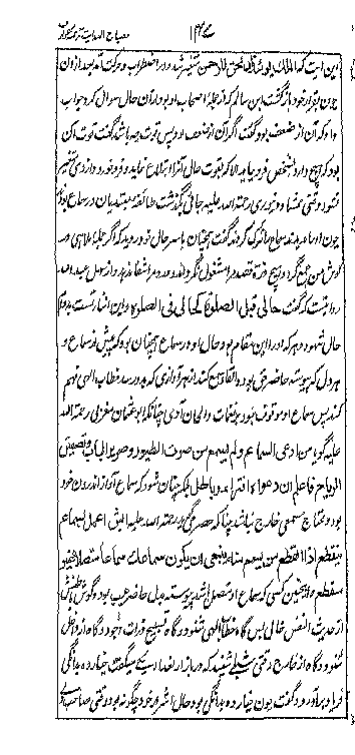 مصباح الهدایت ترجمه عوارف
این آیت که الملک یومئذ الحق للرحمن شنید در اضطراب و حرکت آمد بعد از آن
چون بقرار خود بازگشت ابن سالم که از جمله اصحاب او بود از آن حال سوال کرد جواب
داد که آن از ضعف بود گفت اگر آن از ضعف بود پس قوت چه باشد گفت قوت آن
بود که هیچ وارد بشخص فرو نیاید الا که بقوت حال آنرا ابتلاع نماید و فرو خورد و از وی متغیر
نشود وقتی ممشاد دینوری رحمة الله علیه جائی بگذشت طائفه مبتدیان در سماع بودند
چون او را بدیدند سماع ترک کردند گفت همچنان با سر حال خود روید که اگر جمله ملاهی در
گوش من جمع گردد هیچ ذره قصد مرا مشغول نگرداند و درد مرا شفا ندهد و از سهل عبدالله
روایتست که گفت حالی قبل الصلوة کحالی فی الصلوة و این اشارتست بدوام
حال شهود و هر که او را این مقام بود حال او در سماع همچنان بود که پیش از سماع و
هر دل که پیوسته حاضر حق بود از هر آوازی که بدو رسد خطاب الهی فهم
کند پس سماع او موقوف نبود بر نغمات و الحان آدمی چنانکه ابو عثمان مغربی رحمة الله
علیه گوید من ادعی السماع ولم یسمع من صوت الطیور وصریر الباب وتصفیق
الریاح فاعلم ان دعواه افتراء بلکه چنان شود که سماع آواز اندرون خود
بود و محتاج مسمعی خارج نباشد چنانکه حصری میگوید رحمة الله علیه ایش اعمل بسماع
ینقطع اذا انقطع من یسمع منه و ینبغی ان یکون سماعک سماعا متصلا غیر
منقطع و اینچنین کسی که سماع او متصل باشد پیوسته بدل حاضر غیب بود و گوش باطنش
از حدیث النفس خالی پس گاه خطاب الهی شنود و گاه تسبیح ذرات وجود و گاه از داخل
شنود و گاه از خارج وقتی شبلی شنید که در بازار بغداد یکی میگفت خیار ده بدانگی
فریاد برآورد و گفت چون خیار ده بدانگی بود حال اشرار خود چگونه بود و وقتی صاحبدلی